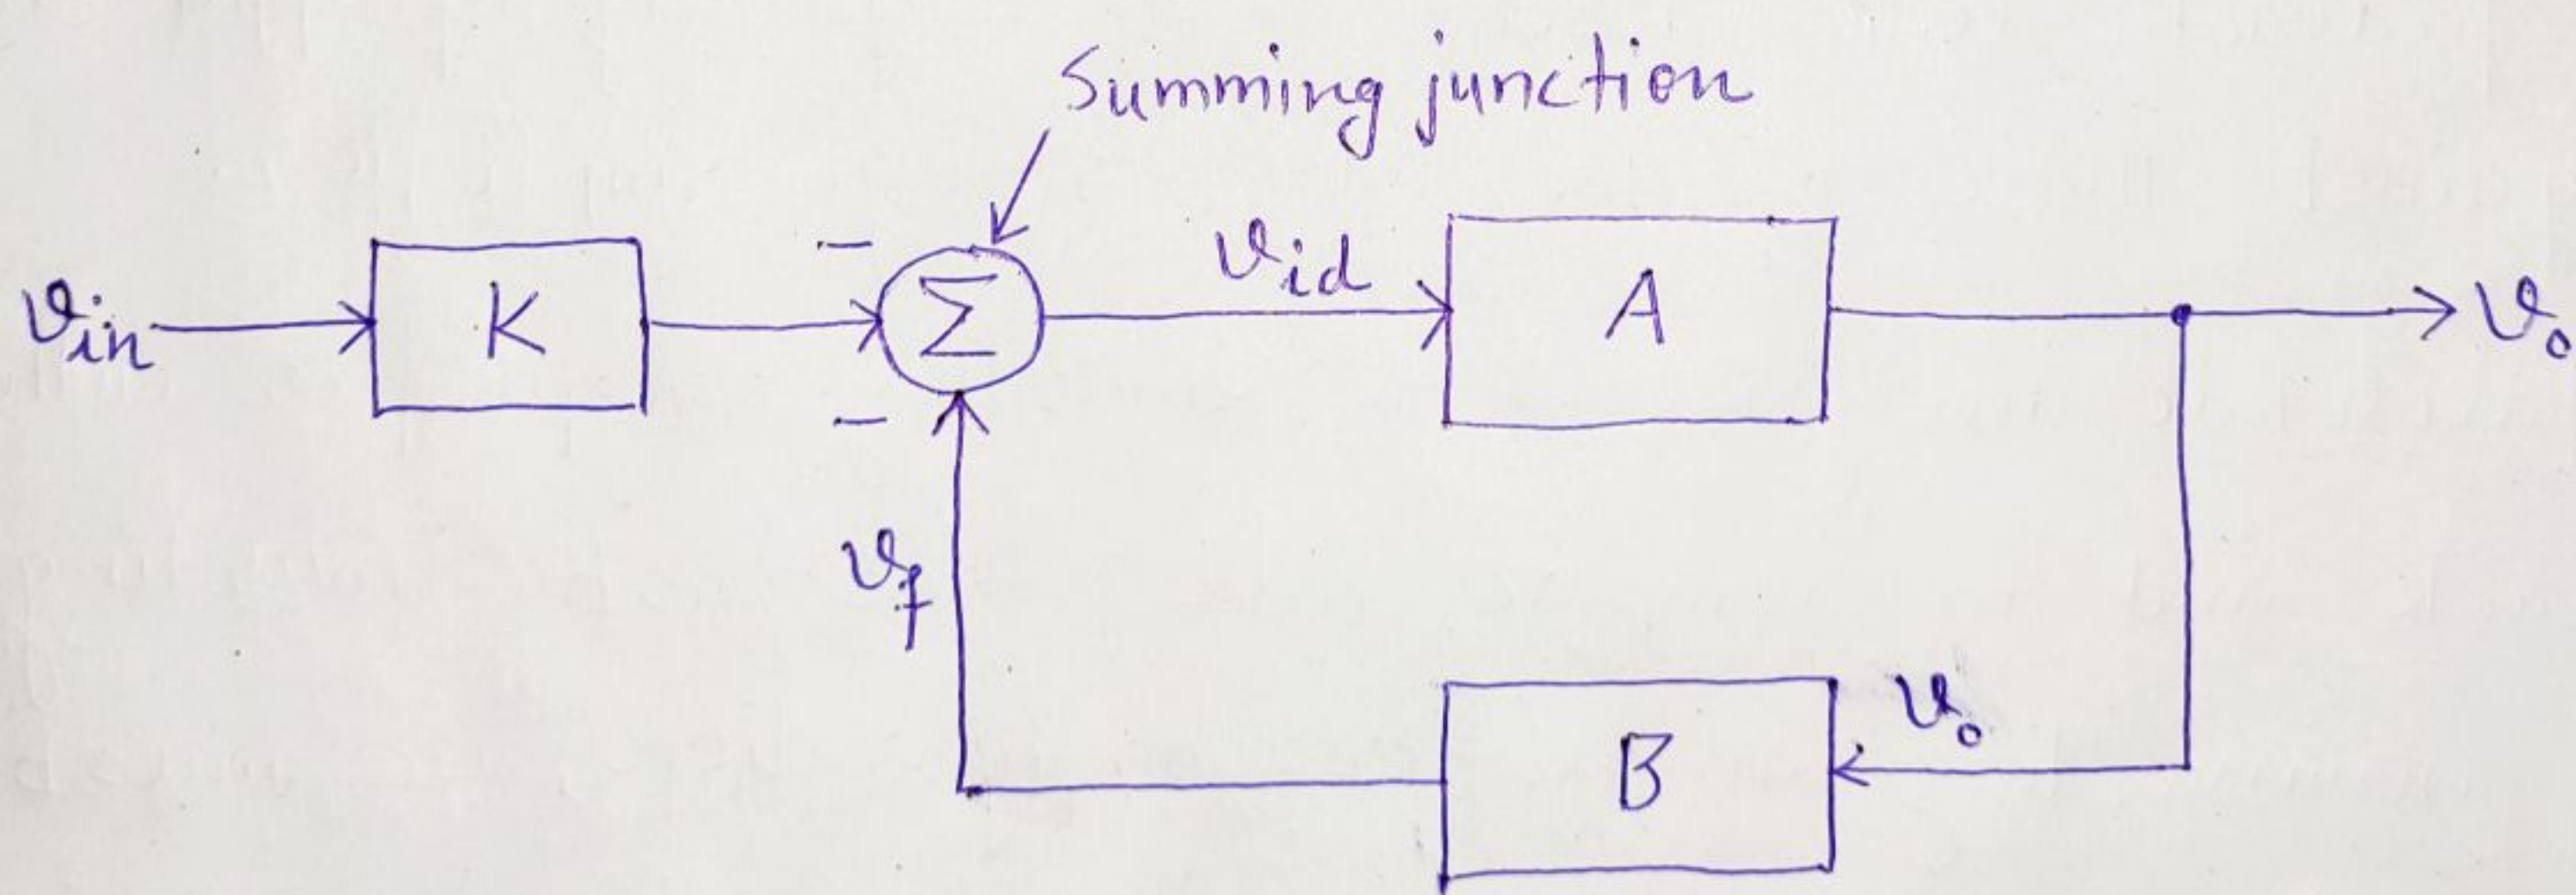 Summing junction
v_in
K
−
Σ
v_id
A
v_o
−
v_f
B
v_o